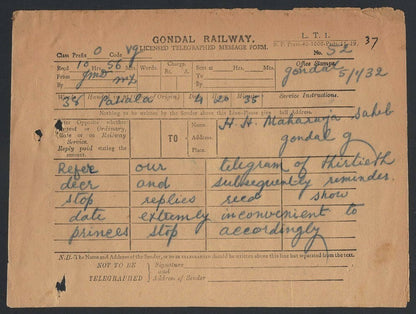 GONDAL RAILWAY.
L. T. 1.
LICENSED TELEGRAPHED MESSAGE FORM.
37
Class Prefix O Code
No. 52
Recd. 10 H. 56 M.
Words.
Charge.
Rs. A.
Sent at H. M.
Office Stamps
From
By
To
By
gondal
5/1/32
38 Patiala 4 20 35
Nothing to be written by the Sender above this Line—Please give full Address.
Enter Opposite whether
Urgent or Ordinary,
State or on Railway
Service.
Reply paid stating the
amount.
TO
Name.
Address.
Place.
H. H. Maharaja Saheb
gondal g
Refer our telegram of thirtieth
decr and subsequently reminder
stop replies recd show
date extremly inconvenient to
princes stop accordingly
N.B.—The Name and Address of the Sender, if to be TELEGRAPHED should be written above this line but separated from the text.
NOT TO BE
TELEGRAPHED
Signature
and
Address of Sender